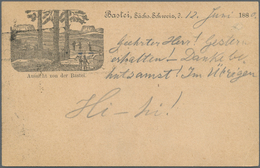 Bastei, Sächs. Schweiz, d. 13. Juni 188
Geehrter Herr! Gestern
erhalten! – Danke be
hutsamst! Im Übrigen
Aussicht von der Bastei.
Hi – hi!